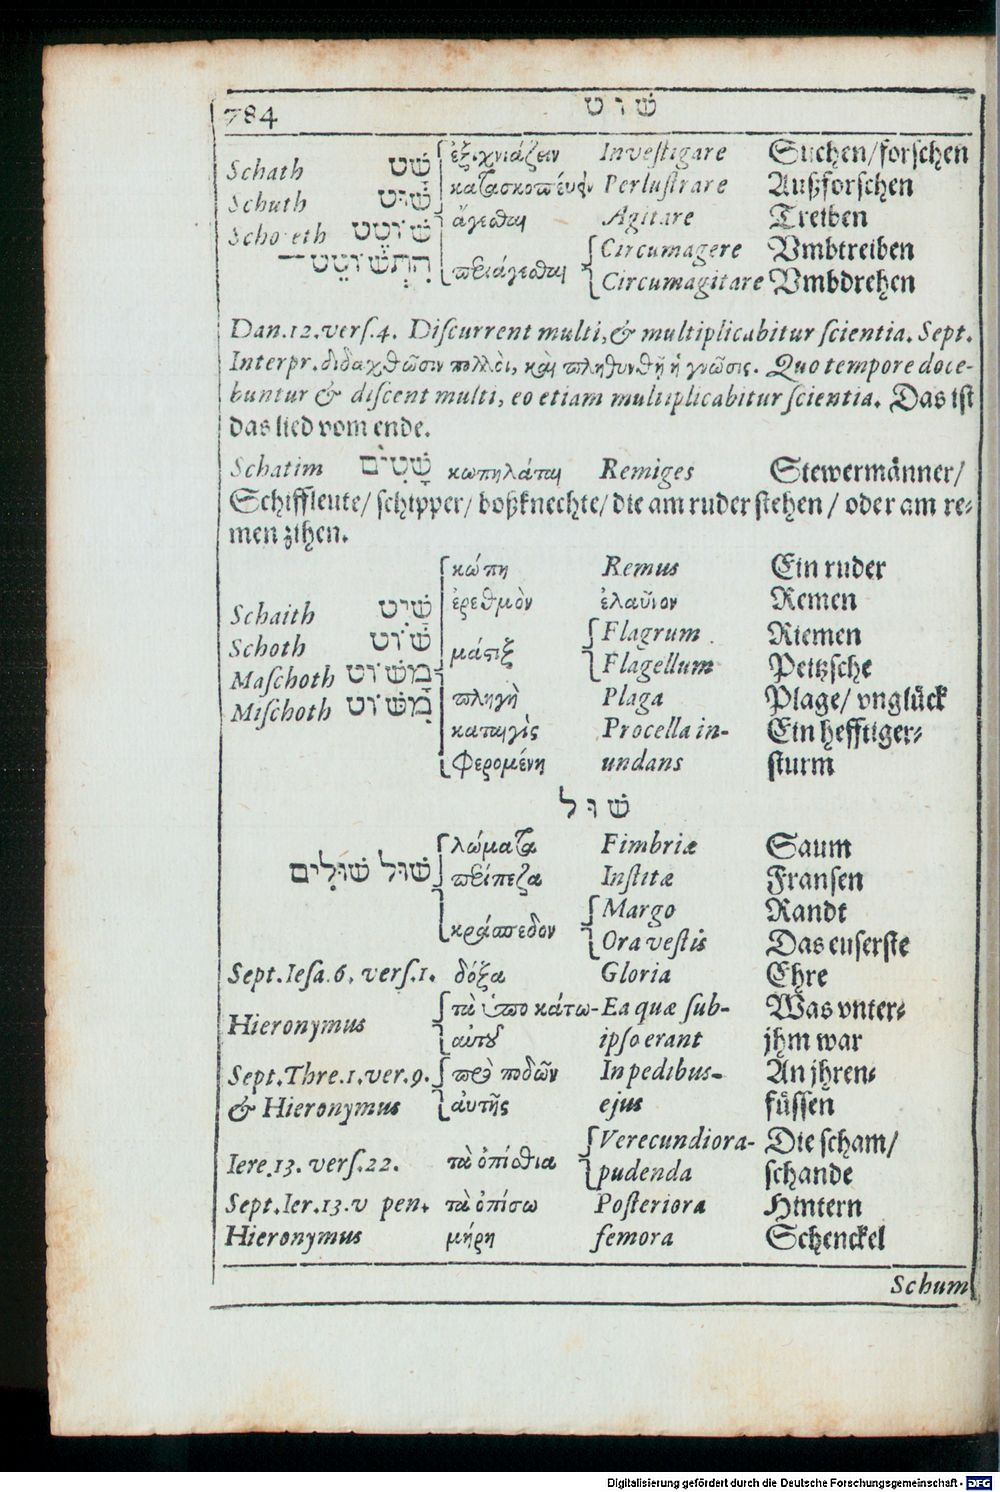 784 שׁוט
Schath שׁט ἐξιχνιάζειν Inveſtigare Suchen/forſchen
Schuth שׁוּט κατασκοπεύειν Perluſtrare Außforſchen
Schoeth שׁוֹטֵט ἄγεσθαι Agitare Treiben
הִתְשׁוֹטֵט— Circumagere Vmbtreiben
περιάγεσθαι Circumagitare Vmbdrehen
Dan.12.verſ.4. Diſcurrent multi, & multiplicabitur ſcientia. Sept.
Interpr. διδαχθῶσιν πολλοὶ, καὶ πληθυνθῇ ἡ γνῶσις. Quo tempore doce-
buntur & diſcent multi, eo etiam multiplicabitur ſcientia. Das iſt
das lied vom ende.
Schatim שָׁטִים κωπηλάται Remiges Stewermänner/
Schiffleute/ ſchipper/ boßknechte/ die am ruder ſtehen / oder am re-
men zihen.
κώπη Remus Ein ruder
Schaith שַׁיִט ἐρεθμὸν ἐλαῦιον Remen
Schoth שׁוֹט Flagrum Riemen
μάστιξ Flagellum Peitzſche
Maſchoth מָשׁוֹט πληγὴ Plaga Plage/ vnglück
Miſchoth מִשּׁוֹט καταιγὶς Procella in- Ein hefftiger-
Φερομένη undans ſturm
שׁוּל
λώματα Fimbriæ Saum
שׁוּל שׁוּלִים περίπεζα Inſtitæ Franſen
Margo Randt
κράσπεδον Ora veſtis Das euſerſte
Sept. Ieſa. 6. verſ.1. δόξα Gloria Ehre
Hieronymus τὰ ὑποκάτω- Ea quæ ſub- Was vnter-
αὐτοῦ ipſo erant jhm war
Sept. Thre.1.ver.9. πρὸ ποδῶν In pedibus- An jhren-
& Hieronymus αὐτῆς ejus füſſen
Verecundiora- Die ſcham/
Iere.13. verſ.22. τὰ ὀπίσθια pudenda ſchande
Sept. Ier.13.v pen. τὰ ὀπίσω Poſteriora Hintern
Hieronymus μήρη femora Schenckel
Schum
Digitalisierung gefördert durch die Deutsche Forschungsgemeinschaft - DFG